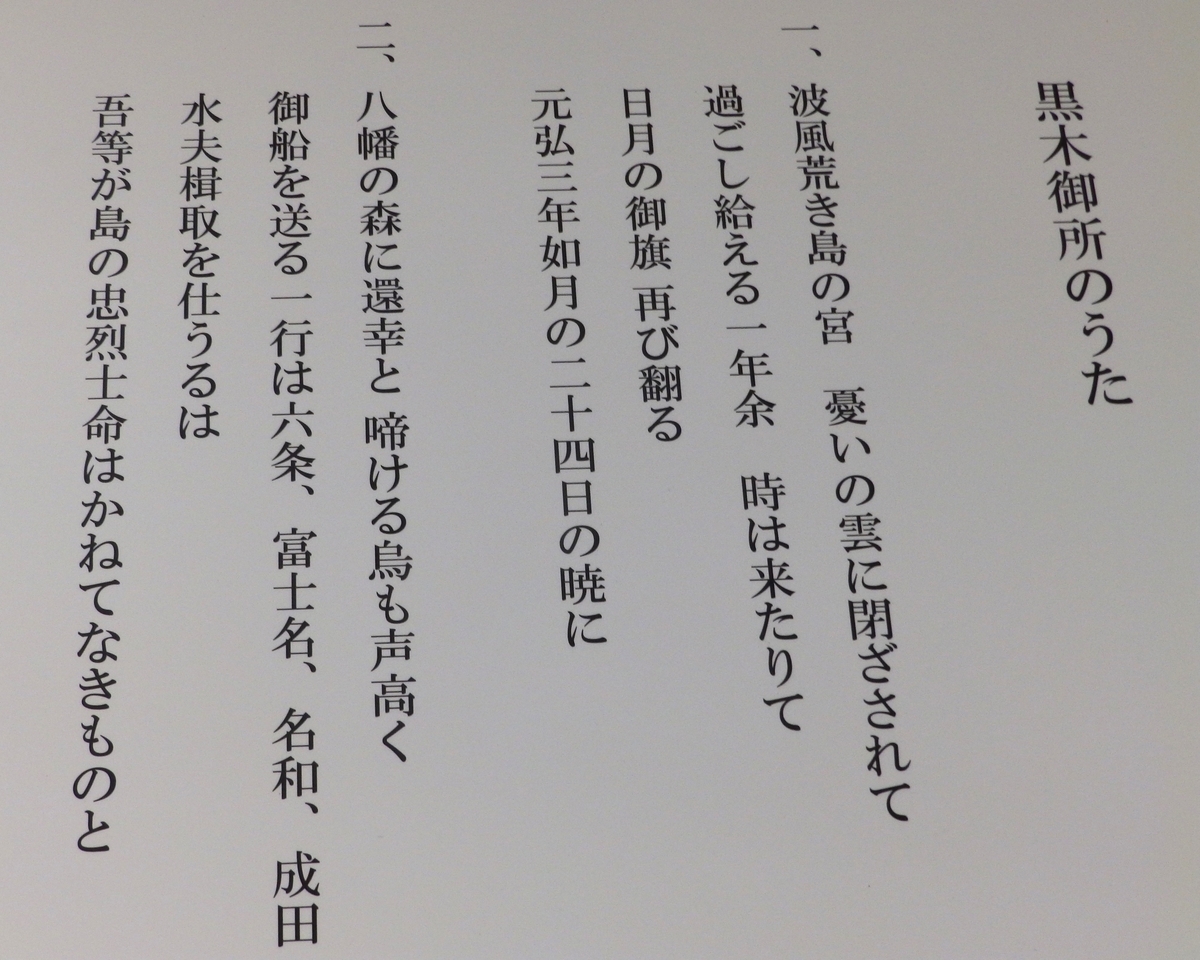 黒木御所のうた
一、波風荒き島の宮　憂いの雲に閉ざされて
過ごし給える一年余　時は来たりて
日月の御旗 再び翻る
元弘三年如月の二十四日の暁に
二、八幡の森に還幸と 啼ける鳥も声高く
御船を送る一行は六条、富士名、名和、成田
水夫楫取を仕うるは
吾等が島の忠烈士命はかねてなきものと